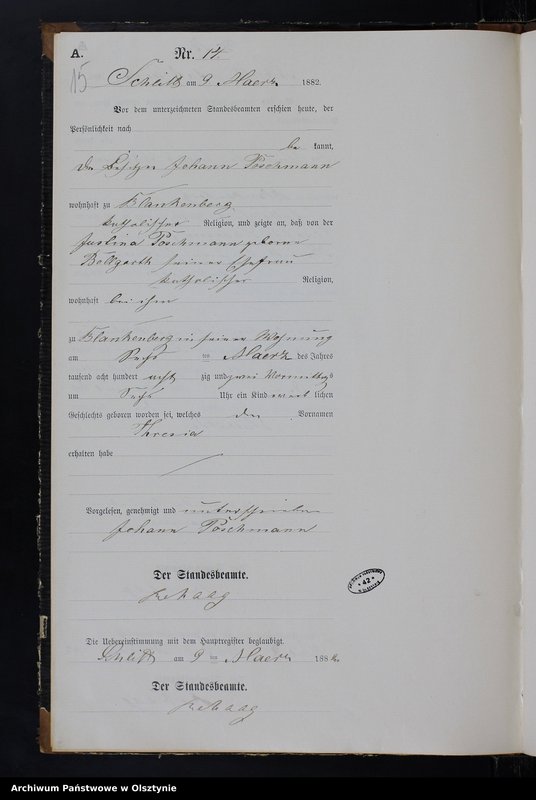 A.
Nr. 14
15
Schlitt am 9 Maerz 1882.
Vor dem unterzeichneten Standesbeamten erschien heute, der
Persönlichkeit nach
be kannt,
der Besitzer Johann Poschmann
wohnhaft zu Blankenberg
katholischer Religion, und zeigte an, daß von der
Justina Poschmann geborene
seiner Ehefrau
katholischer Religion,
wohnhaft bei ihm
zu Blankenberg in seiner Wohnung
am Sechs ten Maerz des Jahres
tausend acht hundert acht zig und zwei Vormittags
um Sechs Uhr ein Kind lichen
Geschlechts geboren worden sei, welches den Vornamen
Theresia
erhalten habe
Vorgelesen, genehmigt und unterschrieben
Johann Poschmann
Der Standesbeamte.
Rehaag
Die Uebereinstimmung mit dem Hauptregister beglaubigt.
Schlitt am 9 ten Maerz 1882.
Der Standesbeamte.
Rehaag
42
Archiwum Państwowe w Olsztynie